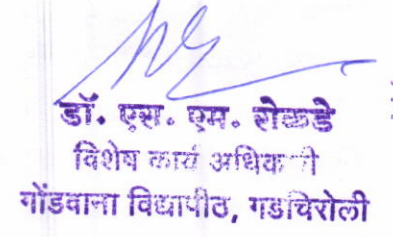 डॉ. एस. एम. रोकडे
विशेष कार्य अधिकारी
गोंडवाना विद्यापीठ, गडचिरोली